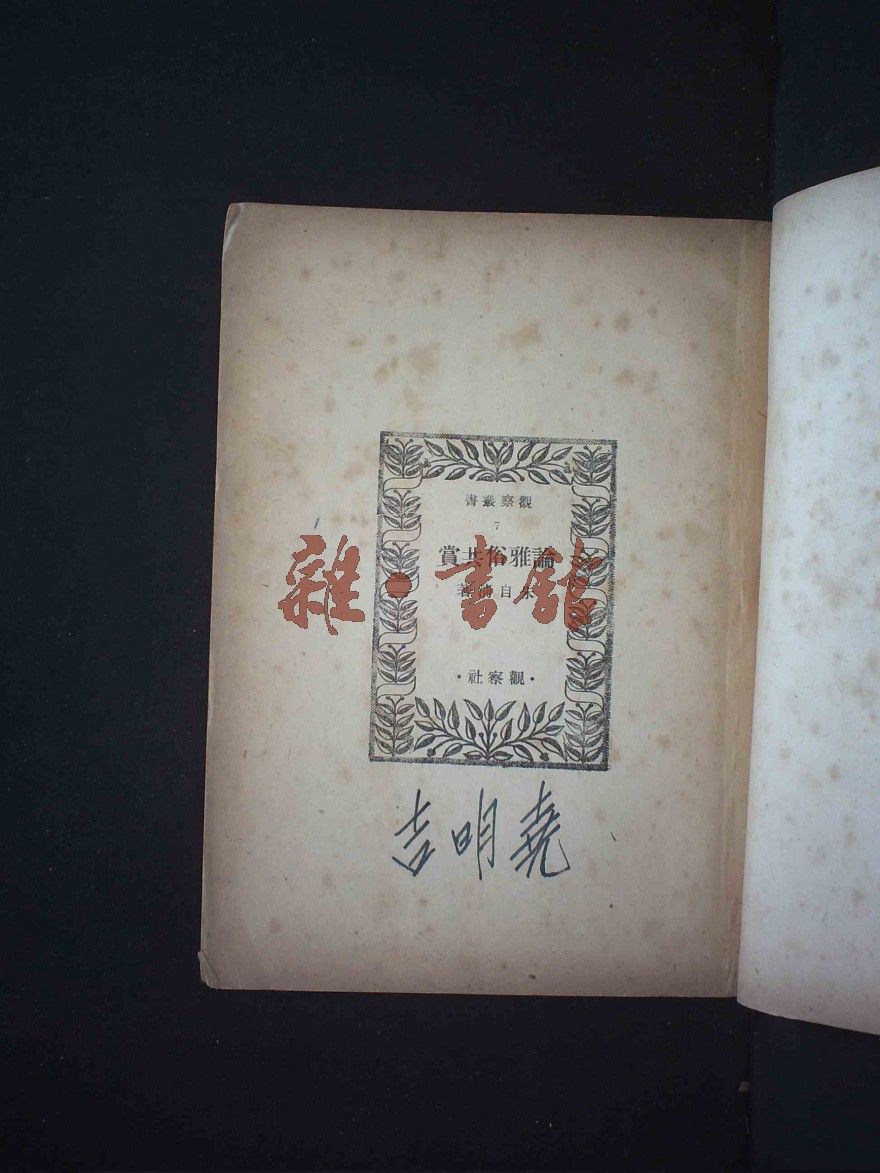 觀察叢書
7
論雅俗共賞
朱自清著
·觀察社·
雜·書館
吉明堯